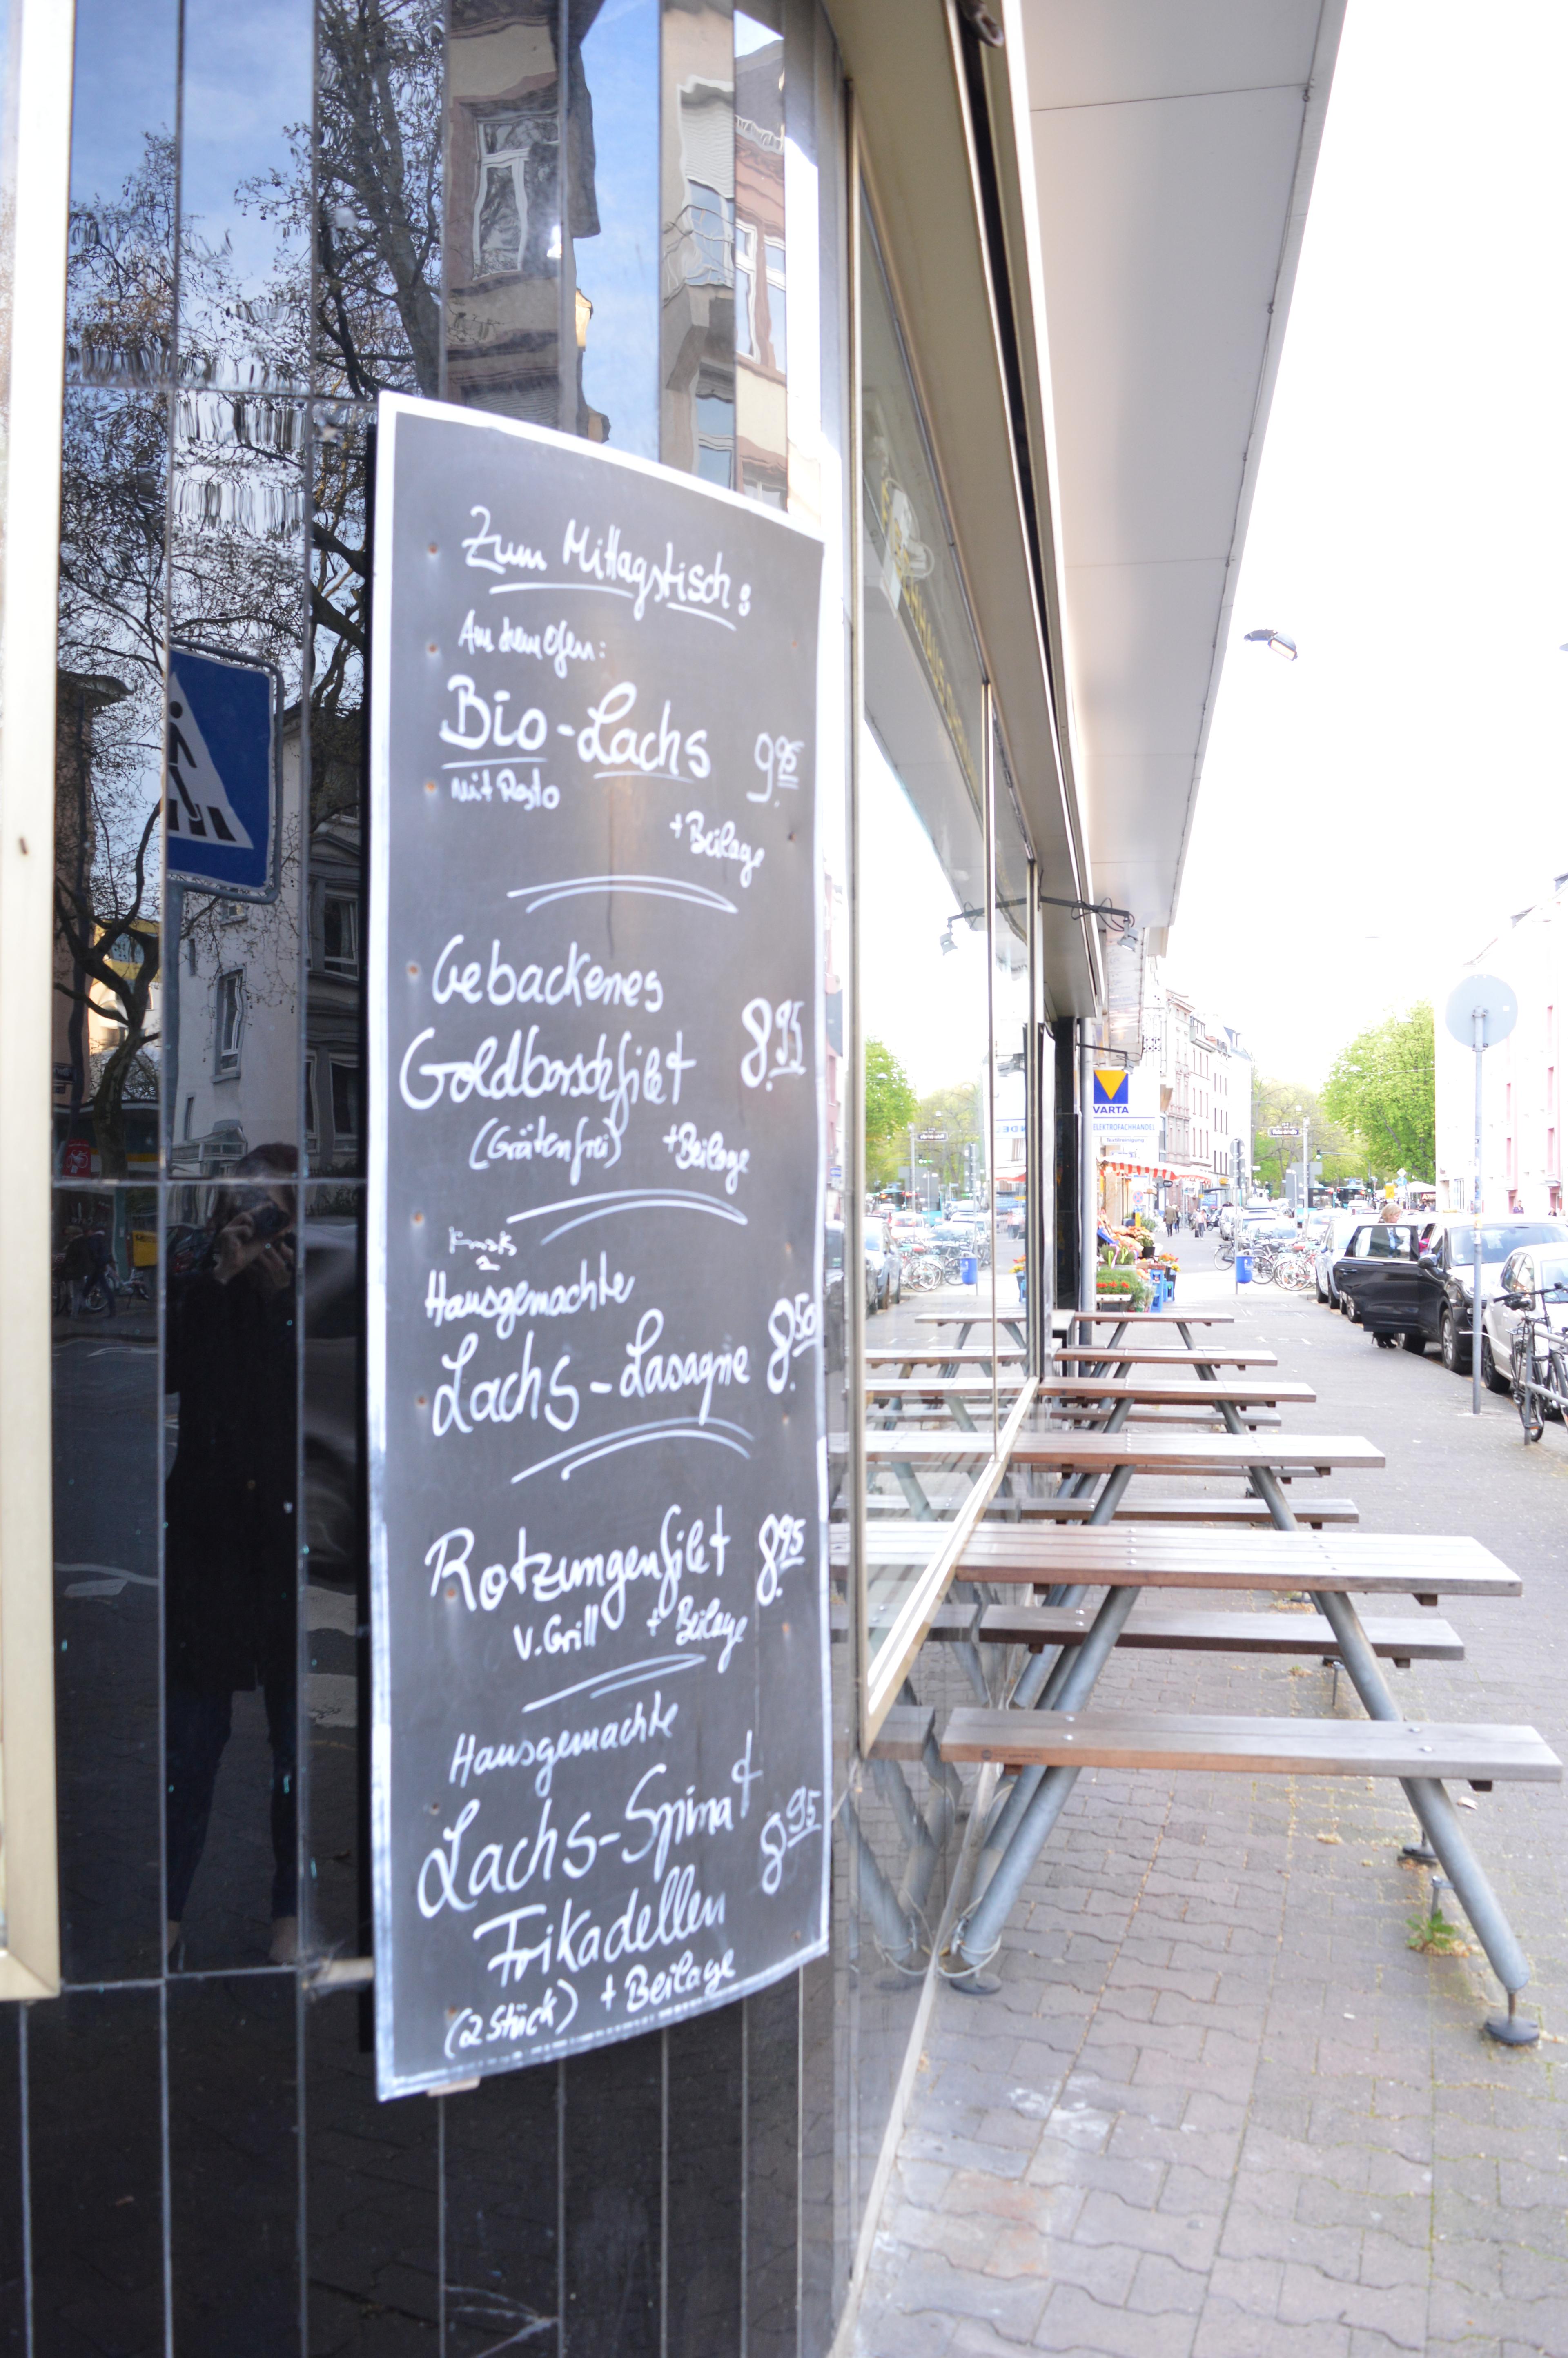 Zum Mittagstisch:
Aus dem Ofen:
Bio-Lachs 9.95
mit Pesto
+ Beilage
Gebackenes
Goldbarschfilet 8.95
(Grätenfrei) + Beilage
Hausgemachte
Lachs-Lasagne 8.50
Rotzungenfilet 8.95
v. Grill + Beilage
Hausgemachte
Lachs-Spinat
Frikadellen 8.95
(2 Stück) + Beilage
VARTA
ELEKTROFACHHANDEL